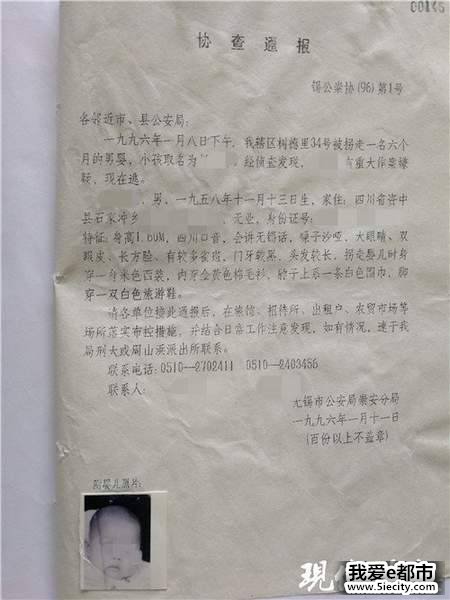 00145
协查通报
锡公崇协(96)第1号
各邻近市、县公安局:
一九九六年一月八日下午,我辖区树德里34号被拐走一名六个
月的男婴,小孩取名为 经侦查发现, 有重大作案嫌
疑,现在逃。
男,一九五八年十一月十三日生,家住:四川省资中
县石 冲乡 无业,身份证号:
特征:身高1.60M,四川口音,会讲无锡话,嗓子沙哑,大眼睛、双
眼皮、长方脸、有较多雀斑,门牙较黑,头发较长,拐走婴儿时身
穿一身米色西装,内穿金黄色棉毛衫,脖子上系一条白色围巾,脚
穿一双白色旅游鞋。
请各单位接此通报后,在旅馆、招待所、出租户、农贸市场等
场所落实布控措施,并结合日常工作注意发现,如有情况,速于我
局刑大或周山浜派出所联系。
联系电话:0510—2702411 0510—2403456
联系人:
无锡市公安局崇安分局
一九九六年一月十一日
(百份以上不盖章)
附婴儿照片:
现
我爱e都市
www.5iecity.com